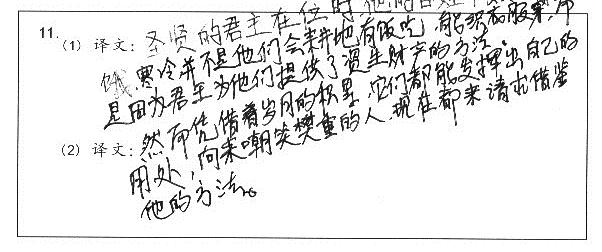 11.
(1) 译文：圣贤的君主在位时，他的百姓不
饿寒冷并不是他们会耕地有饭吃，能织衣服来，而
是因为君主为他们提供了资生财产的方法
(2) 译文：然而凭借着岁月的积累，它们都能发挥出自己的
用处，向来嘲笑樊重的人，现在都来请求借鉴
他的方法。